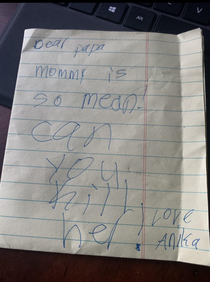 Dear papa
mommy is
so mean!
can
you
kill
her.
Love
Anika